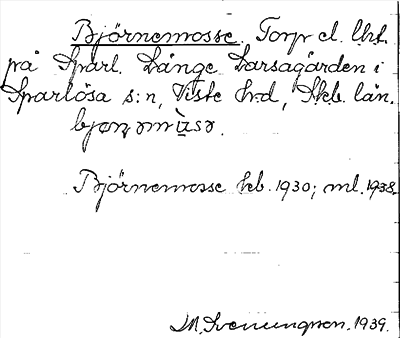 Björnemosse. Torp el. lht.
på Sparl. Långe Larsagården i
Sparlösa s:n, Viste h:d, Skb. län.
Björnemosse hb. 1930; ml. 1938.
M. Svenungson. 1939.